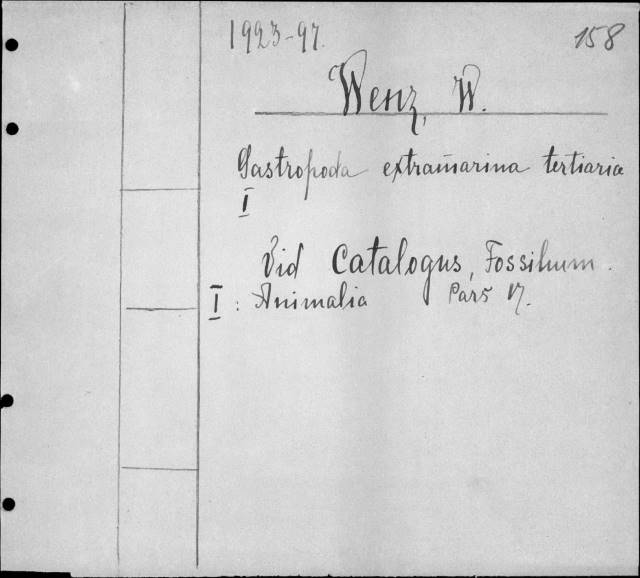 1923-97.
158
Wenz, W.
Gastropoda extramarina tertiaria
I
Vid Catalogus, Fossilium.
I : Animalia Pars 17.